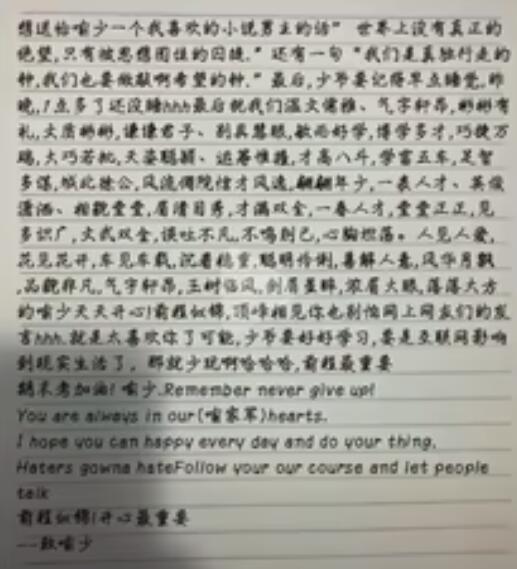 想送给喻少一个我喜欢的小说男主的话”世界上没有真正的
绝望,只有被思想困住的囚徒.”还有一句“我们是真独行走的
种,我们也要做献啊希望的种.”最后,少爷要记得早点睡觉,昨
晚,1点多了还没睡hhh最后祝我们温文儒雅、气宇轩昂,彬彬有
礼,文质彬彬,谦谦君子、别具慧眼,敏而好学,博学多才,巧捷万
端,大巧若拙,天姿聪颖、运筹帷幄,才高八斗,学富五车,足智
多谋,城北徐公,风流倜傥惜才风逸,翩翩年少,一表人才、英俊
潇洒、相貌堂堂,眉清目秀,才满双全,一春人才,堂堂正正,见
多识广,文武双全,谈吐不凡,不鸣则已,心胸坦荡。人见人爱,
花见花开,车见车载,沉着稳重,聪明伶俐,善解人意,风华月貌
,品貌非凡,气宇轩昂,玉树临风,剑眉星眸,浓眉大眼,落落大方
的喻少天天开心!前程似锦,顶峰相见你也别怕网上网友们的发
言hhh.就是太喜欢你了可能,少爷要好好学习,要是互联网影响
到现实生活了,那就少玩啊哈哈哈,前程最重要
期末考加油!喻少.Remember never give up!
You are always in our(喻家军)hearts.
I hope you can happy every day and do your thing,
Haters gowna hateFollow your our course and let people
talk
前程似锦!开心最重要
——致喻少